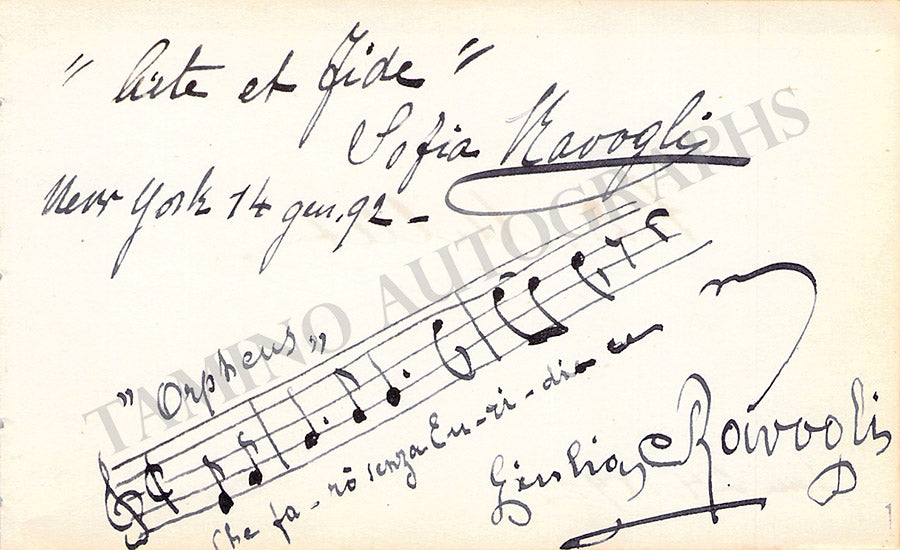 "Arte et Fide"
Sofia Ravogli
New York 14 gen. 92 -
"Orpheus"
Che fa - rò senza Eu - ri - di - ce
Giulia Ravogli
TAMINO AUTOGRAPHS